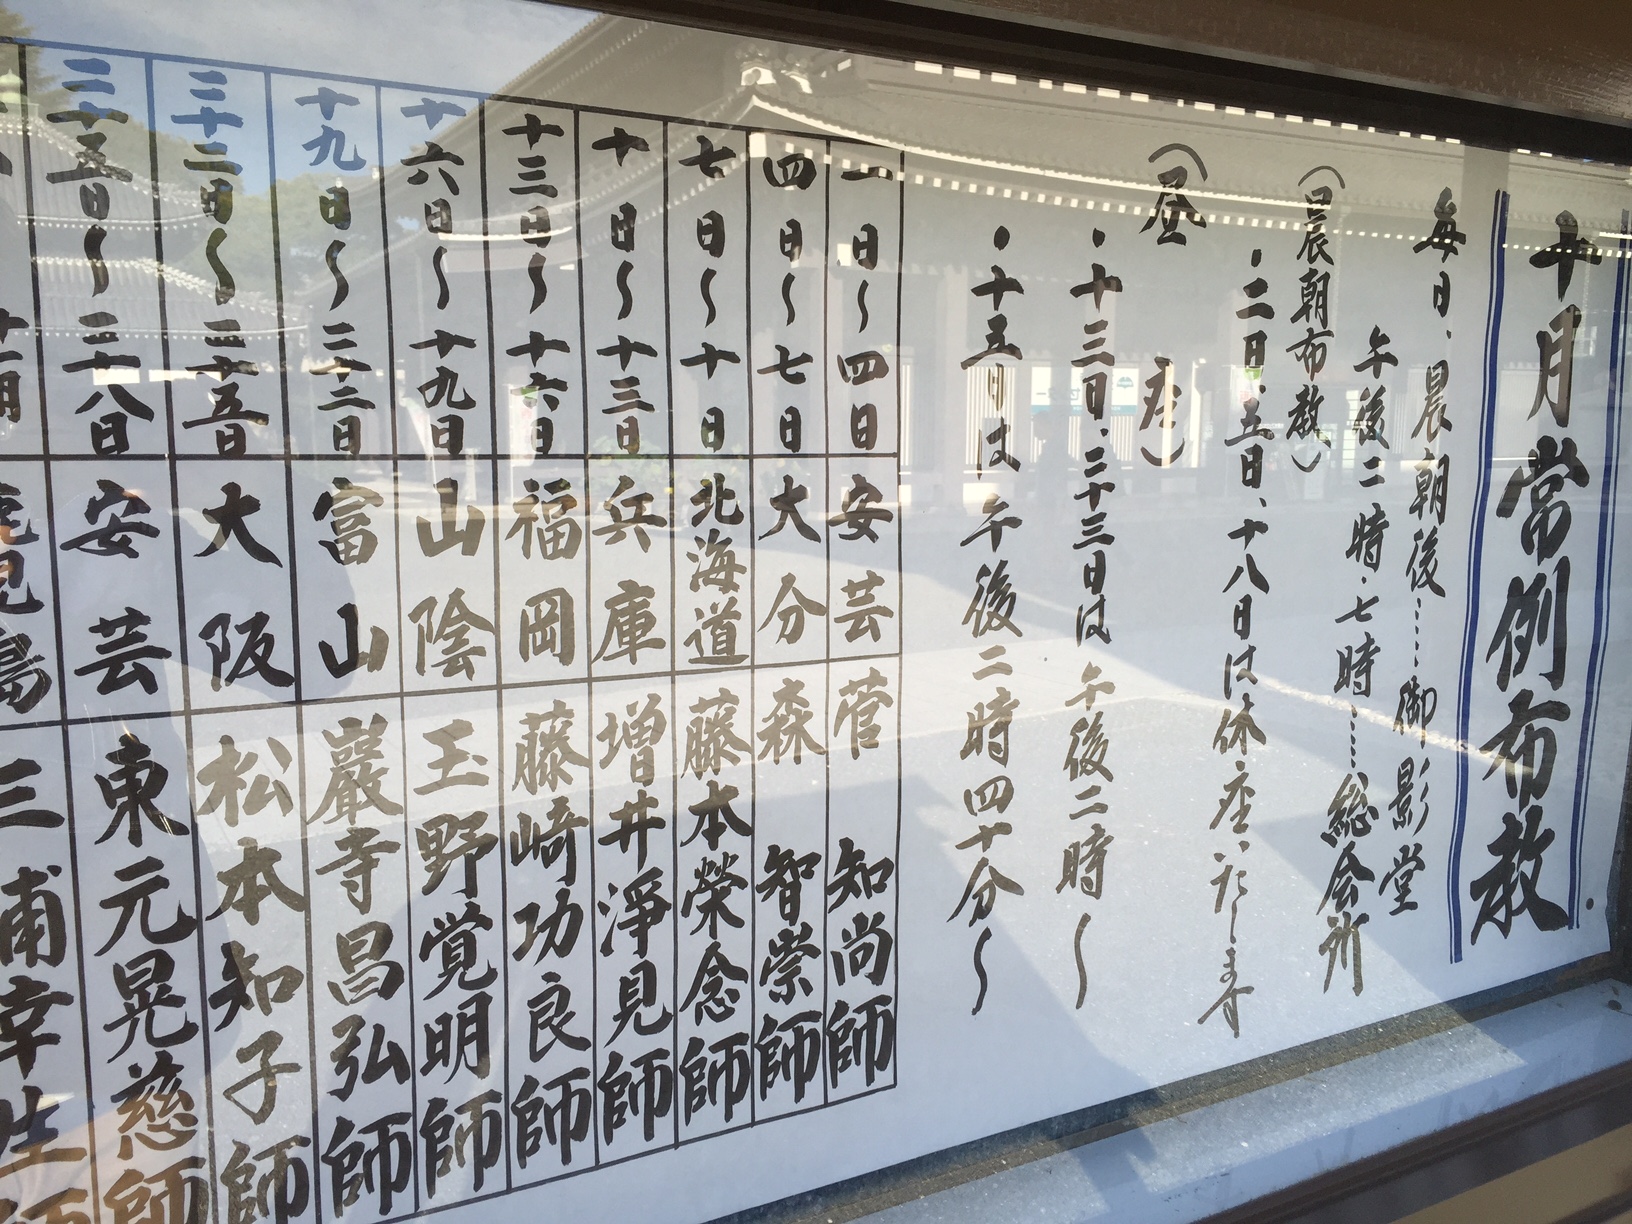 十月常例布教
毎日、晨朝後……御影堂
午後二時・七時……総会所
(晨朝布教)
・二日、五日、十八日は休座いたします
(昼座)
・十三日、二十三日は午後二時〜
・十五日は午後二時四十分〜
一日〜四日 安芸 菅 知尚師
四日〜七日 大分 森 智崇師
七日〜十日 北海道 藤本榮念師
十日〜十三日 兵庫 増井淨見師
十三日〜十六日 福岡 藤崎功良師
十六日〜十九日 山陰 玉野覚明師
十九日〜二十二日 富山 巖寺昌弘師
二十二日〜二十五日 大阪 松本知子師
二十五日〜二十八日 安芸 東元晃慈師
鹿児島 三浦幸生師